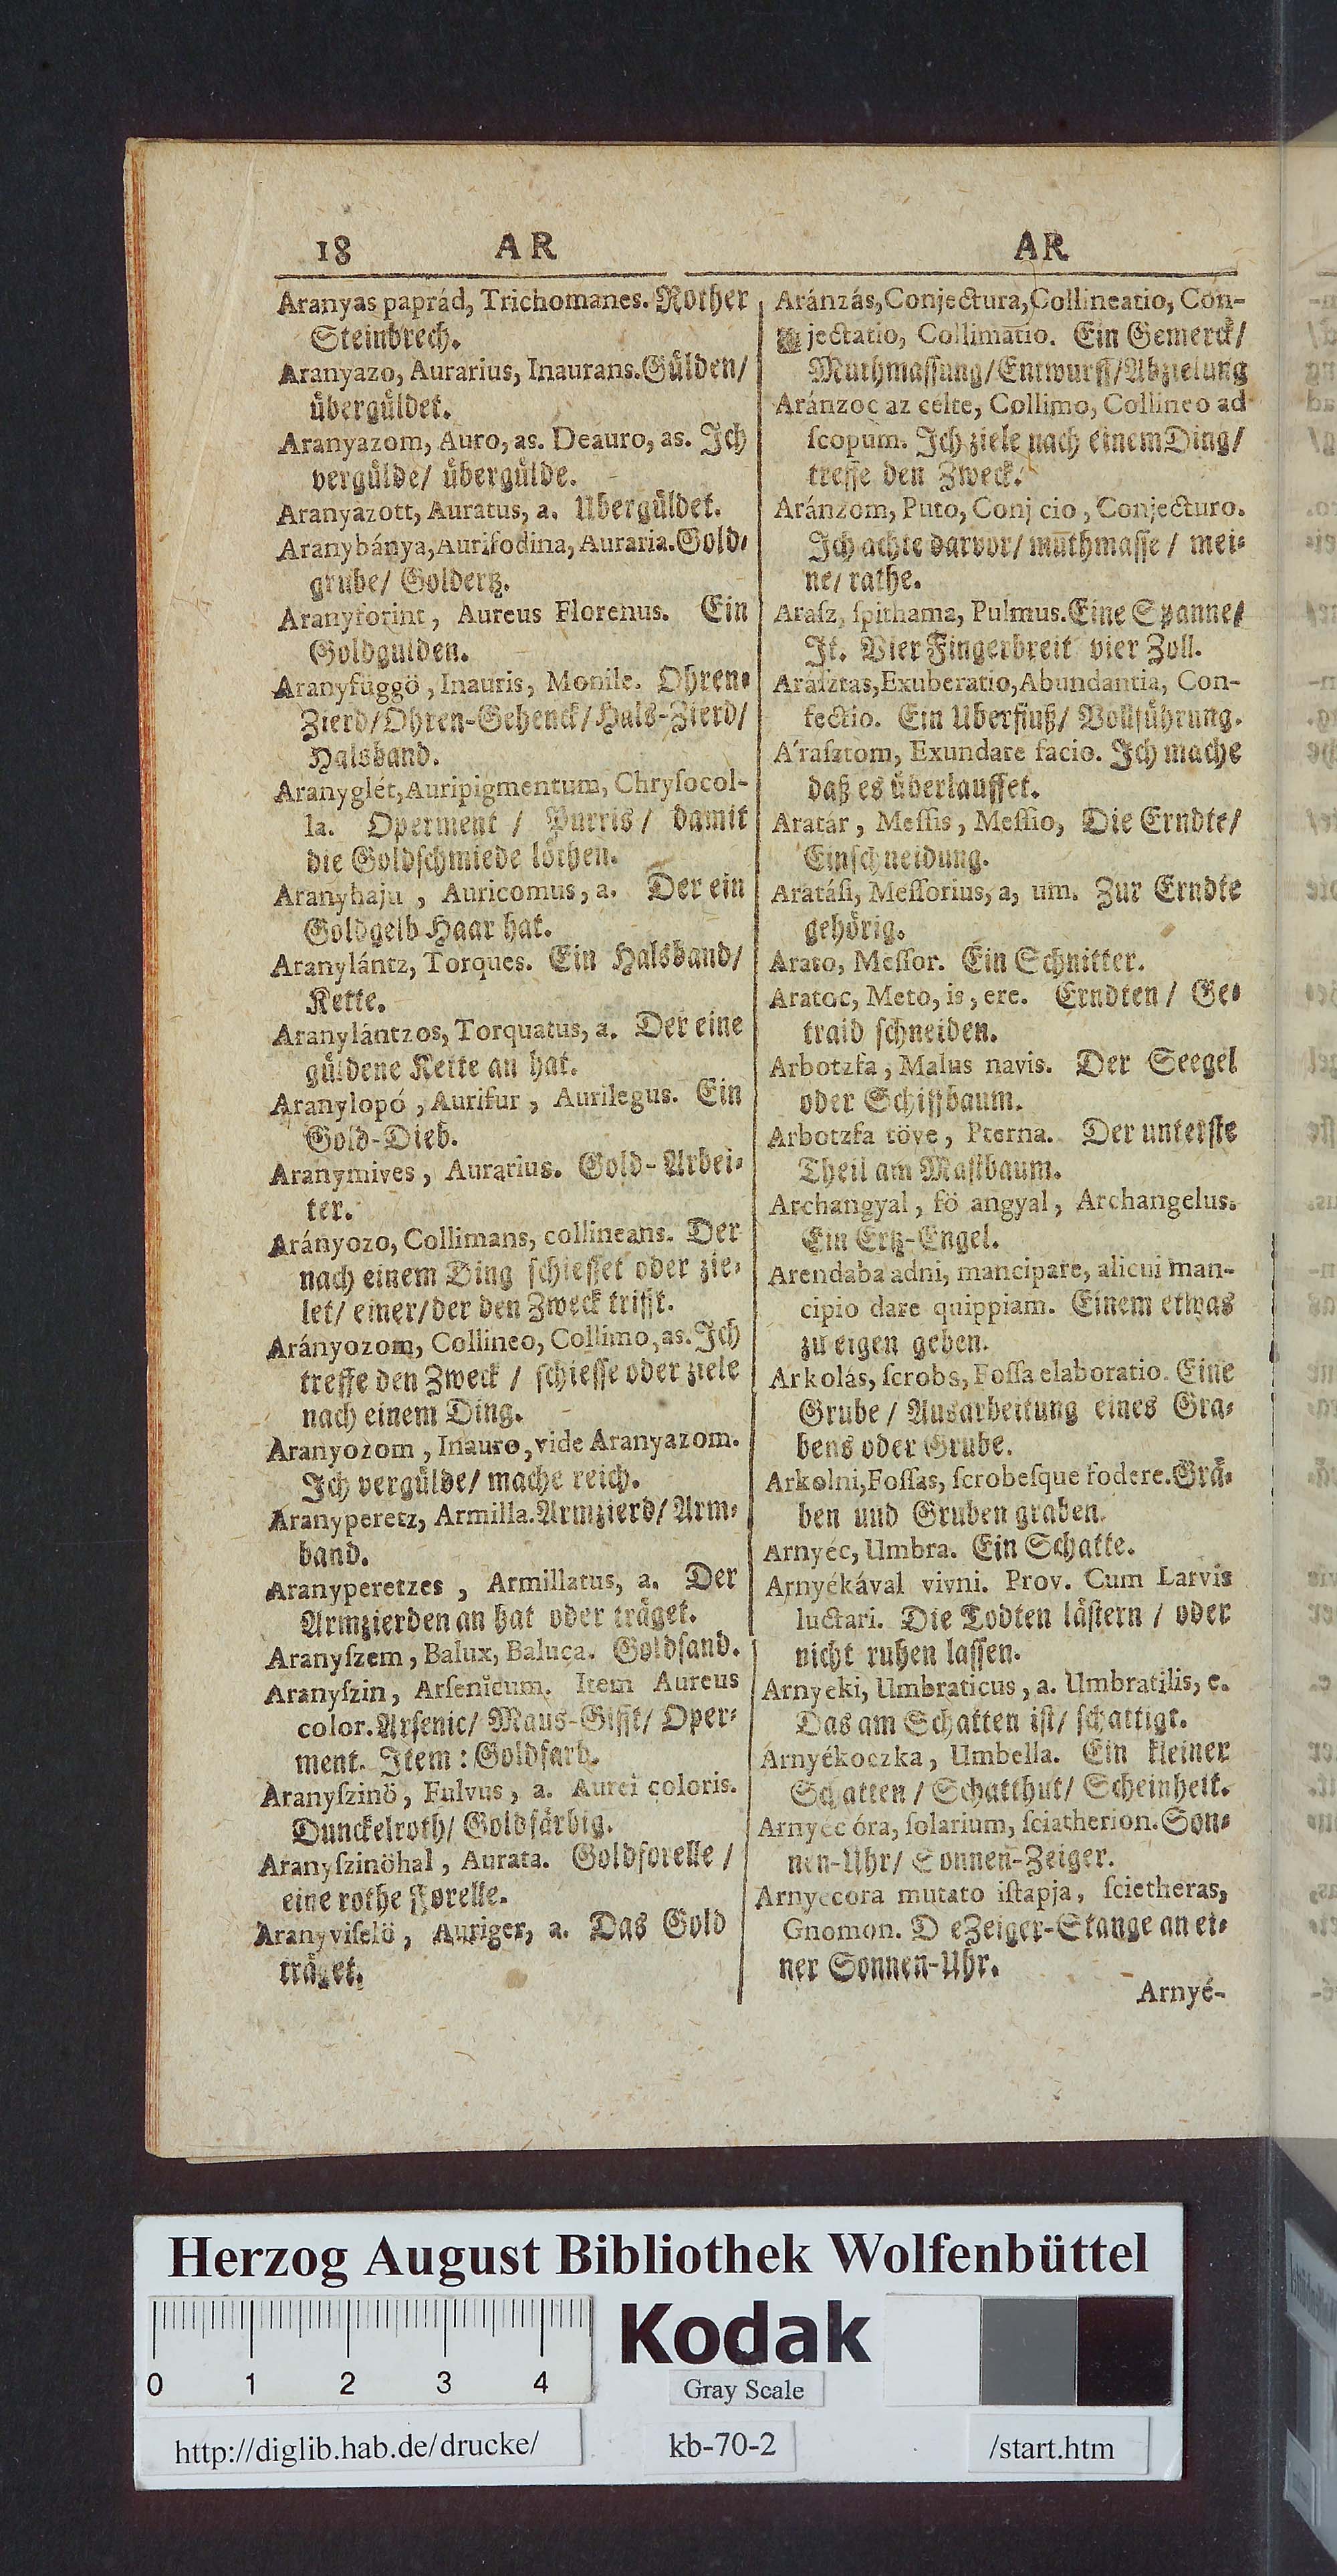 18 AR
Aranyas paprád, Trichomanes. Rother
Steinbrech.
Aranyazo, Aurarius, Inaurans. Gülden/
übergüldet.
Aranyazom, Auro, as. Deauro, as. Ich
vergülde/ übergülde.
Aranyazott, Auratus, a. Ubergüldet.
Aranybánya, Aurifodina, Auraria. Gold-
grube/ Goldertz.
Aranyforint, Aureus Florenus. Ein
Goldgulden.
Aranyfüggö, Inauris, Monile. Ohren-
Zierd/Ohren-Gehenck/Hals-Zierd/
Halsband.
Aranyglét, Auripigmentum, Chryſocol-
la. Operment / Purris / damit
die Goldschmiede löthen.
Aranyhaju, Auricomus, a. Der ein
Goldgelb Haar hat.
Aranylántz, Torques. Ein Halsband/
Kette.
Aranylántzos, Torquatus, a. Der eine
güldene Kette an hat.
Aranylopó, Aurifur, Aurilegus. Ein
Gold-Dieb.
Aranymives, Aurarius. Gold-Arbei-
ter.
Arányozo, Collimans, collineans. Der
nach einem Ding schiesset oder zie-
let/ einer/der den Zweck trifft.
Arányozom, Collineo, Collimo, as. Ich
treffe den Zweck / schiesse oder ziele
nach einem Ding.
Aranyozom, Inauro, vide Aranyazom.
Ich vergülde/ mache reich.
Aranyperetz, Armilla. Armzierd/ Arm-
band.
Aranyperetzes, Armillatus, a. Der
Armzierden an hat oder träget.
Aranyſzem, Balux, Baluca. Goldsand.
Aranyſzin, Arſenicum. Item Aureus
color. Arsenic/ Maus-Gifft/ Oper-
ment. Item: Goldfarb.
Aranyſzinö, Fulvus, a. Aurei coloris.
Dunckelroth/ Goldfärbig.
Aranyſzinöhal, Aurata. Goldforelle /
eine rothe Forelle.
Aranyviſelö, Auriger, a. Das Gold
träget.
AR
Aránzás, Conjectura, Collineatio, Con-
jectatio, Collimatio. Ein Gemerck/
Muthmassung/Entwurff/Abzielung
Aránzoc az celte, Collimo, Collineo ad
ſcopum. Ich ziele nach einem Ding/
treffe den Zweck.
Aránzom, Puto, Conj cio, Conjecturo.
Ich achte darvor/ muthmasse / mei-
ne/ rathe.
Araſz, ſpithama, Pulmus. Eine Spanne/
It. Vier Fingerbreit vier Zoll.
Aráſztas, Exuberatio, Abundantia, Con-
fectio. Ein Uberfluß/ Vollführung.
A'raſztom, Exundare facio. Ich mache
daß es überlauffet.
Aratár, Meſſis, Meſſio, Die Erndte/
Einschneidung.
Aratáſi, Meſſorius, a, um. Zur Erndte
gehörig.
Arato, Meſſor. Ein Schnitter.
Aratoc, Meto, is, ere. Erndten / Ge-
traid schneiden.
Arbotzfa, Malus navis. Der Seegel
oder Schiffbaum.
Arbotzfa töve, Pterna. Der unterste
Theil am Mastbaum.
Archangyal, fö angyal, Archangelus.
Ein Ertz-Engel.
Arendaba adni, mancipare, alicui man-
cipio dare quippiam. Einem etwas
zu eigen geben.
Arkolás, ſcrobs, Foſſa elaboratio. Eine
Grube / Ausarbeitung eines Gra-
bens oder Grube.
Arkolni, Foſſas, ſcrobeſque fodere. Grä-
ben und Gruben graben.
Arnyéc, Umbra. Ein Schatte.
Arnyékával vivni. Prov. Cum Larvis
luctari. Die Todten lästern / oder
nicht ruhen lassen.
Arnyeki, Umbraticus, a. Umbratilis, e.
Das am Schatten ist/ schattigt.
Arnyékoczka, Umbella. Ein kleiner
Schatten / Schatthut/ Scheinheit.
Arnyéc óra, ſolarium, ſciatherion. Son-
nen-Uhr/ Sonnen-Zeiger.
Arnyecora mutato iſtapja, ſcietheras,
Gnomon. D eZeiger-Stange an ei-
ner Sonnen-Uhr.
Arnyé-
Herzog August Bibliothek Wolfenbüttel
Kodak
0 1 2 3 4
Gray Scale
http://diglib.hab.de/drucke/ kb-70-2 /start.htm